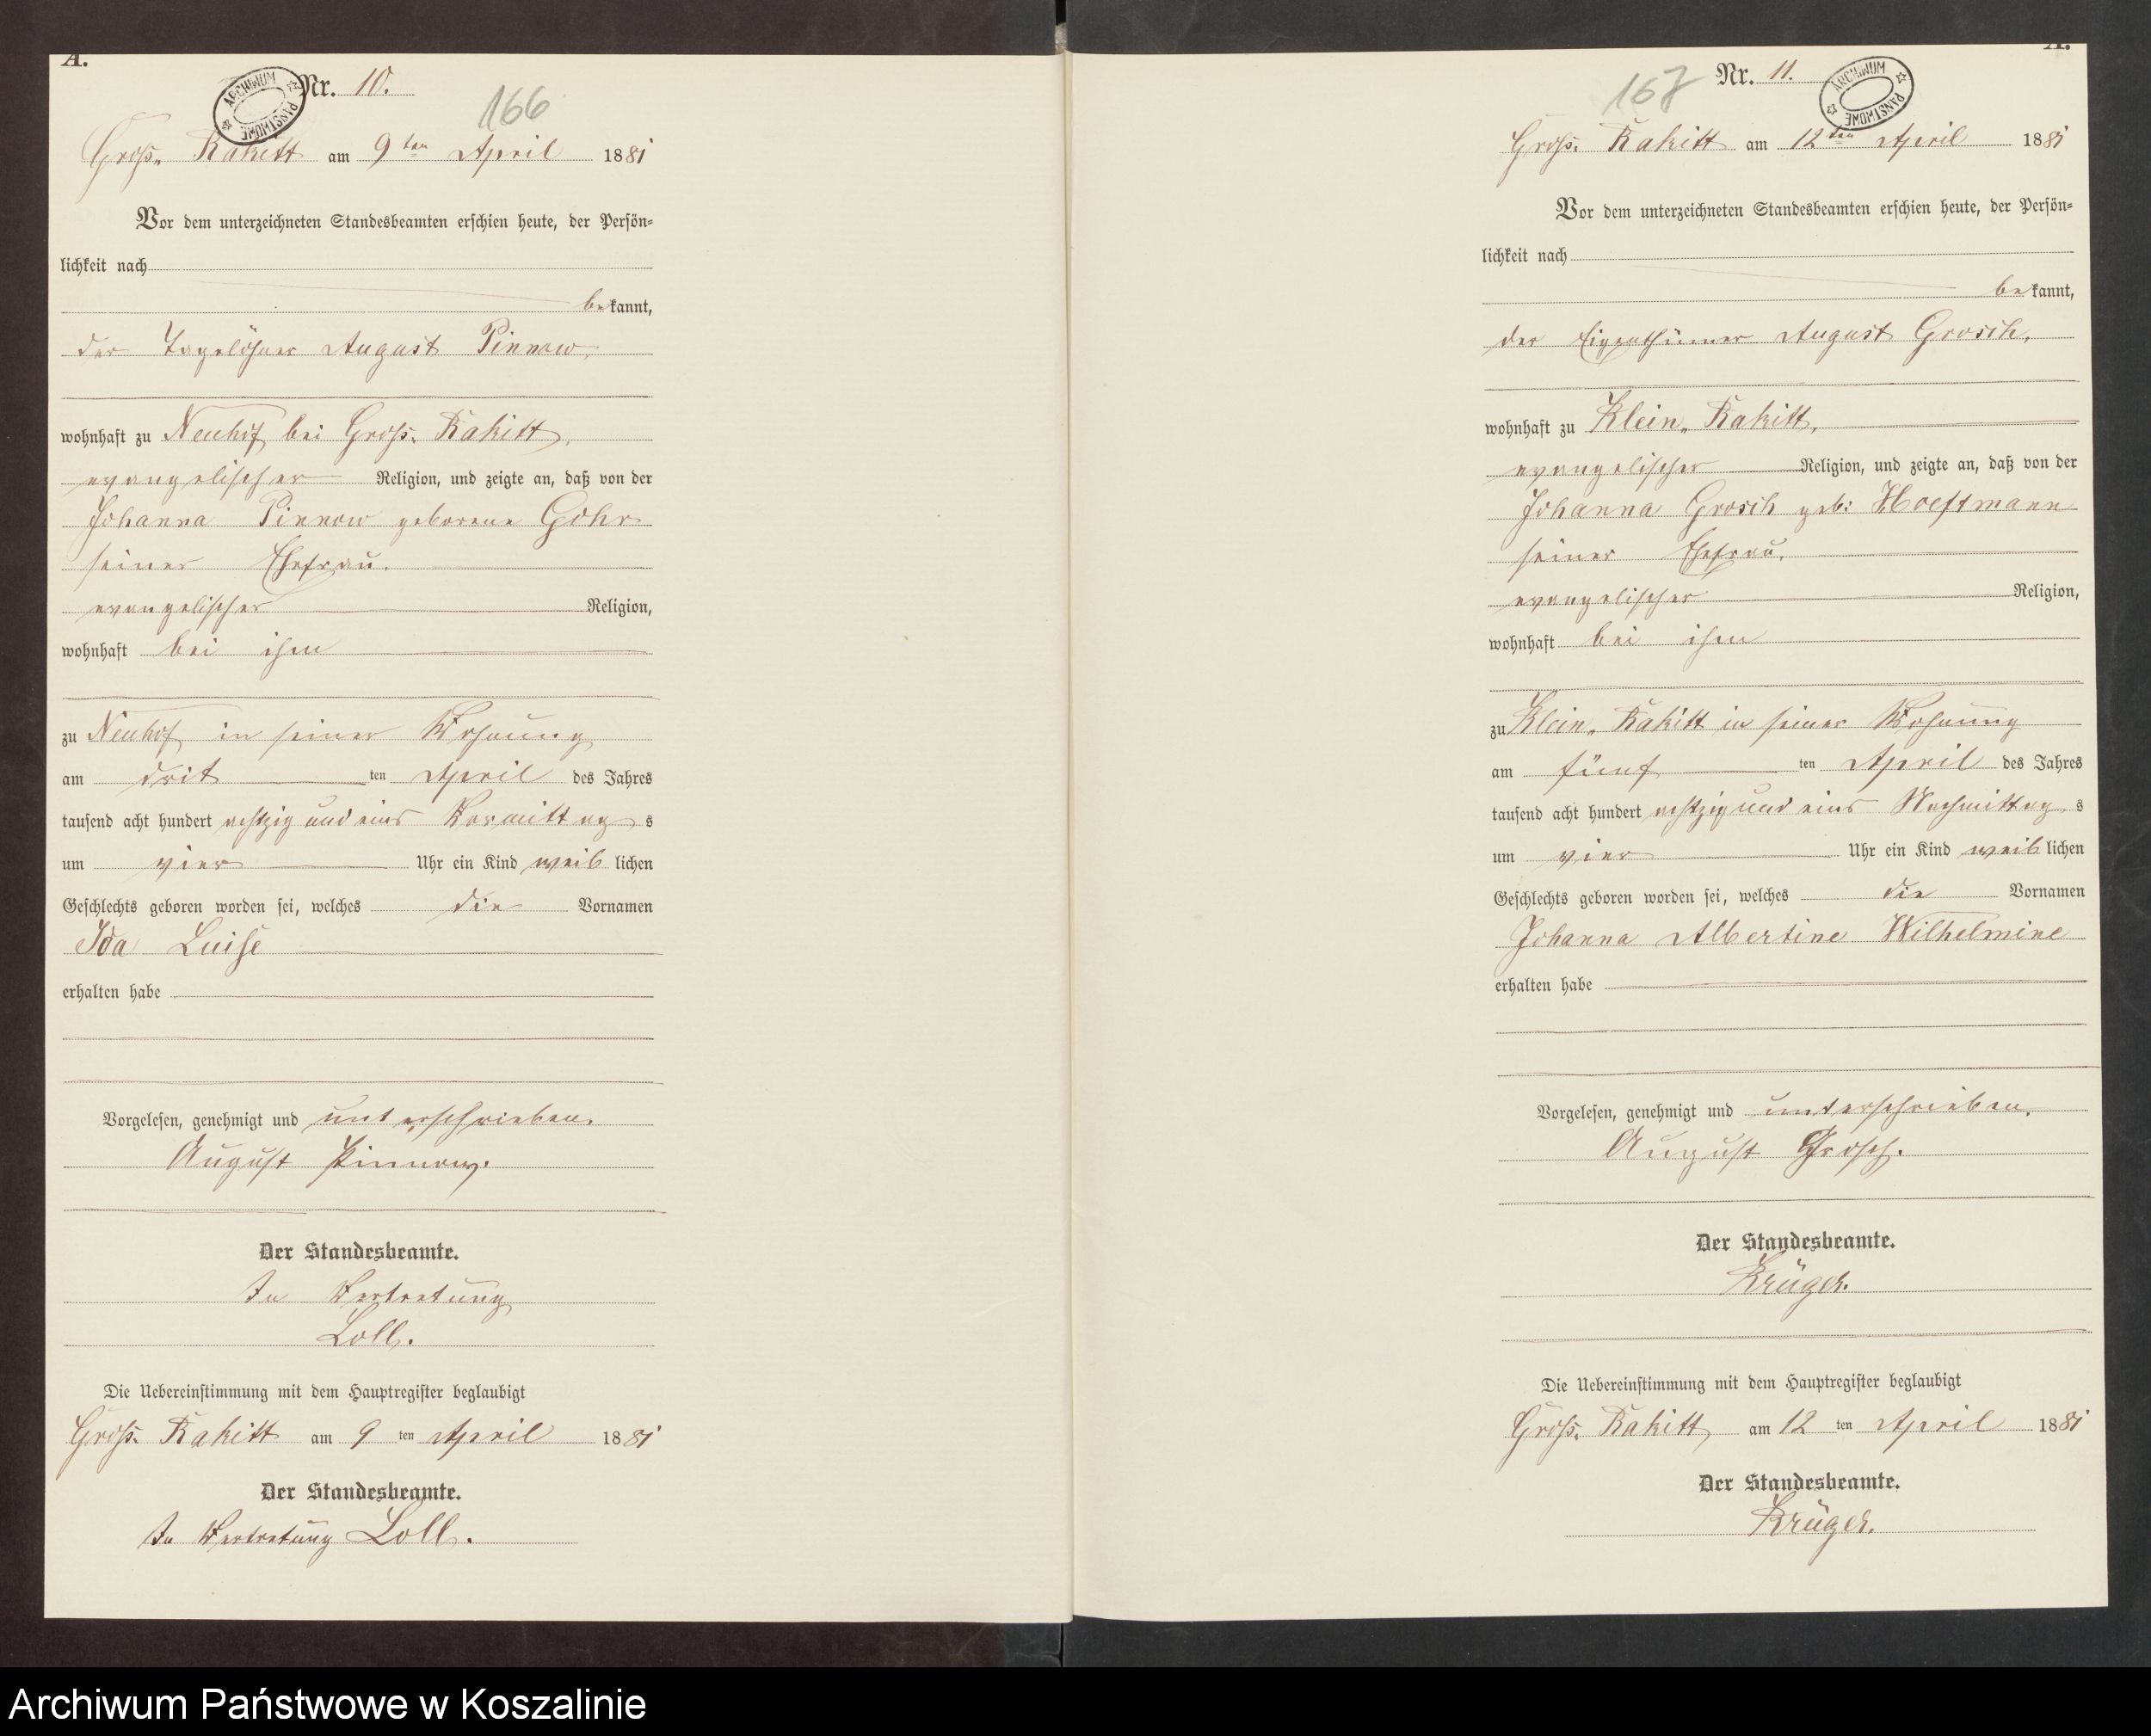 A.
Nr. 10.
ARCHIWUM PAŃSTWOWE
166
Groß. Rakitt am 9ten April 1881
Vor dem unterzeichneten Standesbeamten erschien heute, der Persön=
lichkeit nach
bekannt,
der Tagelöhner August Pinnow,
wohnhaft zu Neuhof bei Groß. Rakitt,
evangelischer Religion, und zeigte an, daß von der
Johanna Pinnow geborene Gohr
seiner Ehefrau.
evangelischer Religion,
wohnhaft bei ihm
zu Neuhof in seiner Wohnung
am drit ten April des Jahres
tausend acht hundert achtzig und eins Vormittag s
um vier Uhr ein Kind weib lichen
Geschlechts geboren worden sei, welches die Vornamen
Ida Luise
erhalten habe
Vorgelesen, genehmigt und unterschrieben.
August Pinnow.
Der Standesbeamte.
In Vertretung
Loll.
Die Uebereinstimmung mit dem Hauptregister beglaubigt
Groß. Rakitt am 9 ten April 1881
Der Standesbeamte.
In Vertretung Loll.
A.
Nr. 11.
ARCHIWUM PAŃSTWOWE
167
Groß. Rakitt am 12ten April 1881
Vor dem unterzeichneten Standesbeamten erschien heute, der Persön=
lichkeit nach
bekannt,
der Eigenthümer August Grosch,
wohnhaft zu Klein. Rakitt,
evangelischer Religion, und zeigte an, daß von der
Johanna Grosch geb: Hoeftmann
seiner Ehefrau.
evangelischer Religion,
wohnhaft bei ihm
zu Klein. Rakitt in seiner Wohnung
am fünf ten April des Jahres
tausend acht hundert achtzig und eins Nachmittag s
um vier Uhr ein Kind weib lichen
Geschlechts geboren worden sei, welches die Vornamen
Johanna Albertine Wilhelmine
erhalten habe
Vorgelesen, genehmigt und unterschrieben.
August Grosch.
Der Standesbeamte.
Krüger.
Die Uebereinstimmung mit dem Hauptregister beglaubigt
Groß. Rakitt, am 12 ten April 1881
Der Standesbeamte.
Krüger.
Archiwum Państwowe w Koszalinie